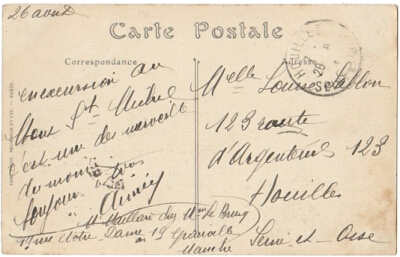 26 aout
Carte Postale
Correspondance
Adresse
en excursion au
Mont St Michel
c'est une des merveille
du monde
toujours
Aimée
Melle Louise
123 route
d'Argenteuil 123
Houilles
Seine et Oise
chez Mme Le
rue Notre Dame 19 Granville
Manche
HOUILLES